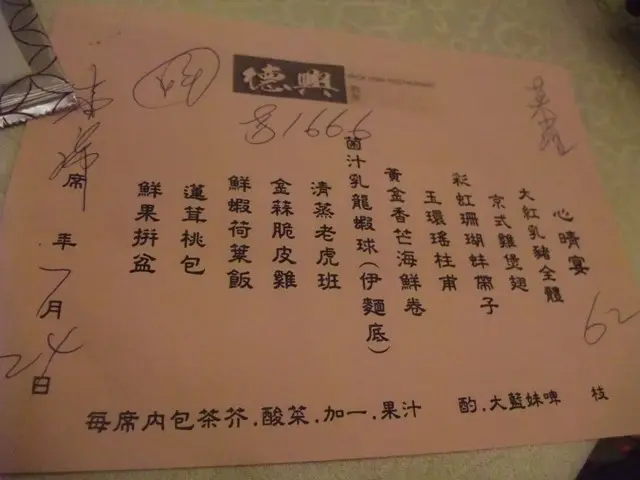 德興
$1666
心晴宴
大紅乳豬全體
京式雞煲翅
彩虹珊瑚蚌帶子
玉環瑤柱甫
黃金香芒海鮮卷
菌汁乳龍蝦球(伊麵底)
清蒸老虎班
金蒜脆皮雞
鮮蝦荷葉飯
蓮茸桃包
鮮果拼盆
席
年7月24日
62
每席內包茶芥.酸菜.加一.果汁 酌.大藍妹啤 枝